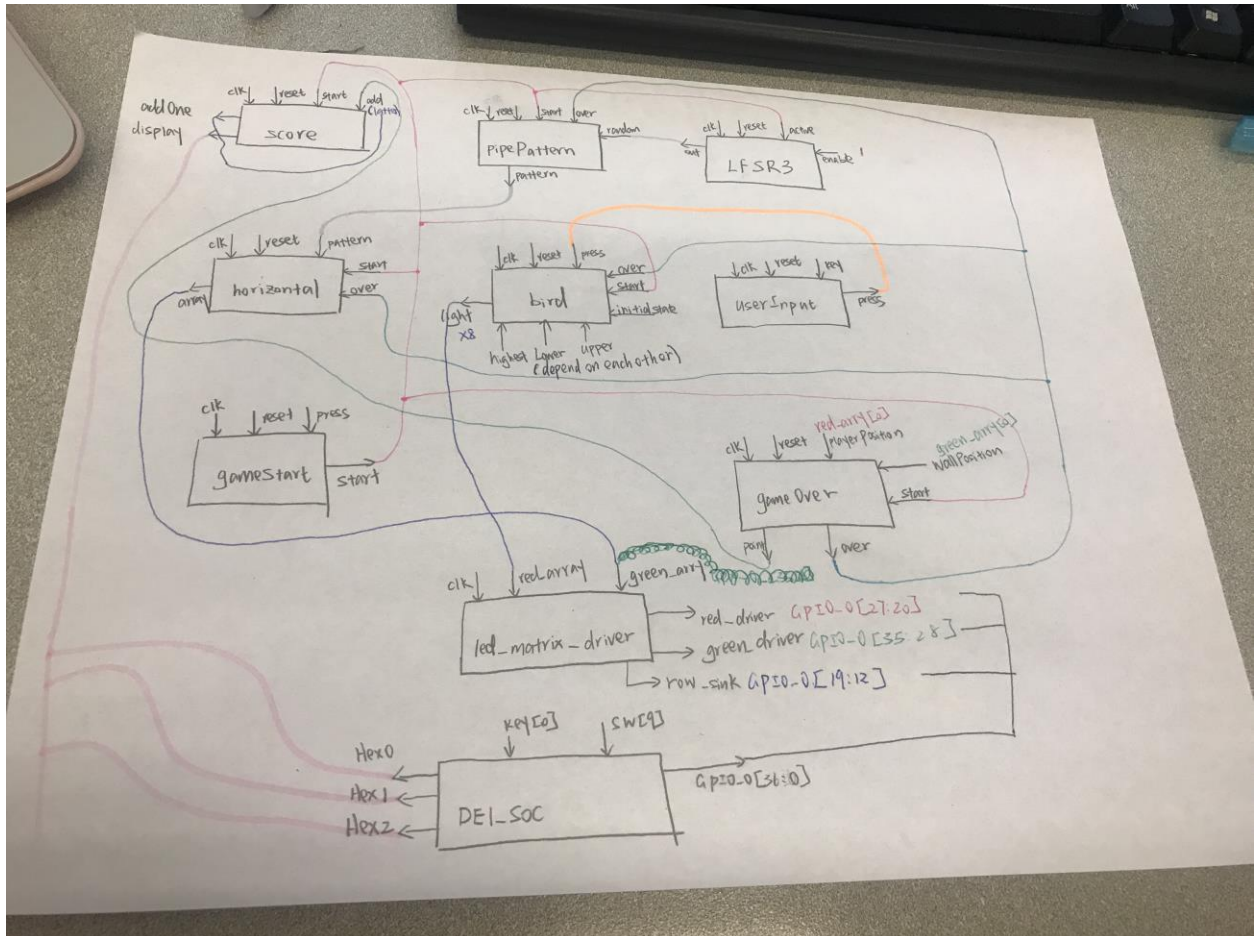 clk reset start add
addOne
display
score
clk reset start over
random
pipePattern
pattern
clk reset active
out
enable 1
LFSR3
clk reset pattern
start
over
array
horizontal
clk reset press
over
start
initialstate
bird
light
x8
highest lower upper
(depend on each other)
clk reset key
userInput
press
clk reset press
gameStart
start
clk reset red_arry[0]
playerPosition
green_arry[0]
wallPosition
start
gameOver
over
clk red_array green_arry
led_matrix_driver
red_driver GPIO_0[27:20]
green_driver GPIO_0[35:28]
row_sink GPIO_0[19:12]
key[0] SW[9]
Hex0
Hex1
Hex2
DE1_SOC
GPIO_0[36:0]